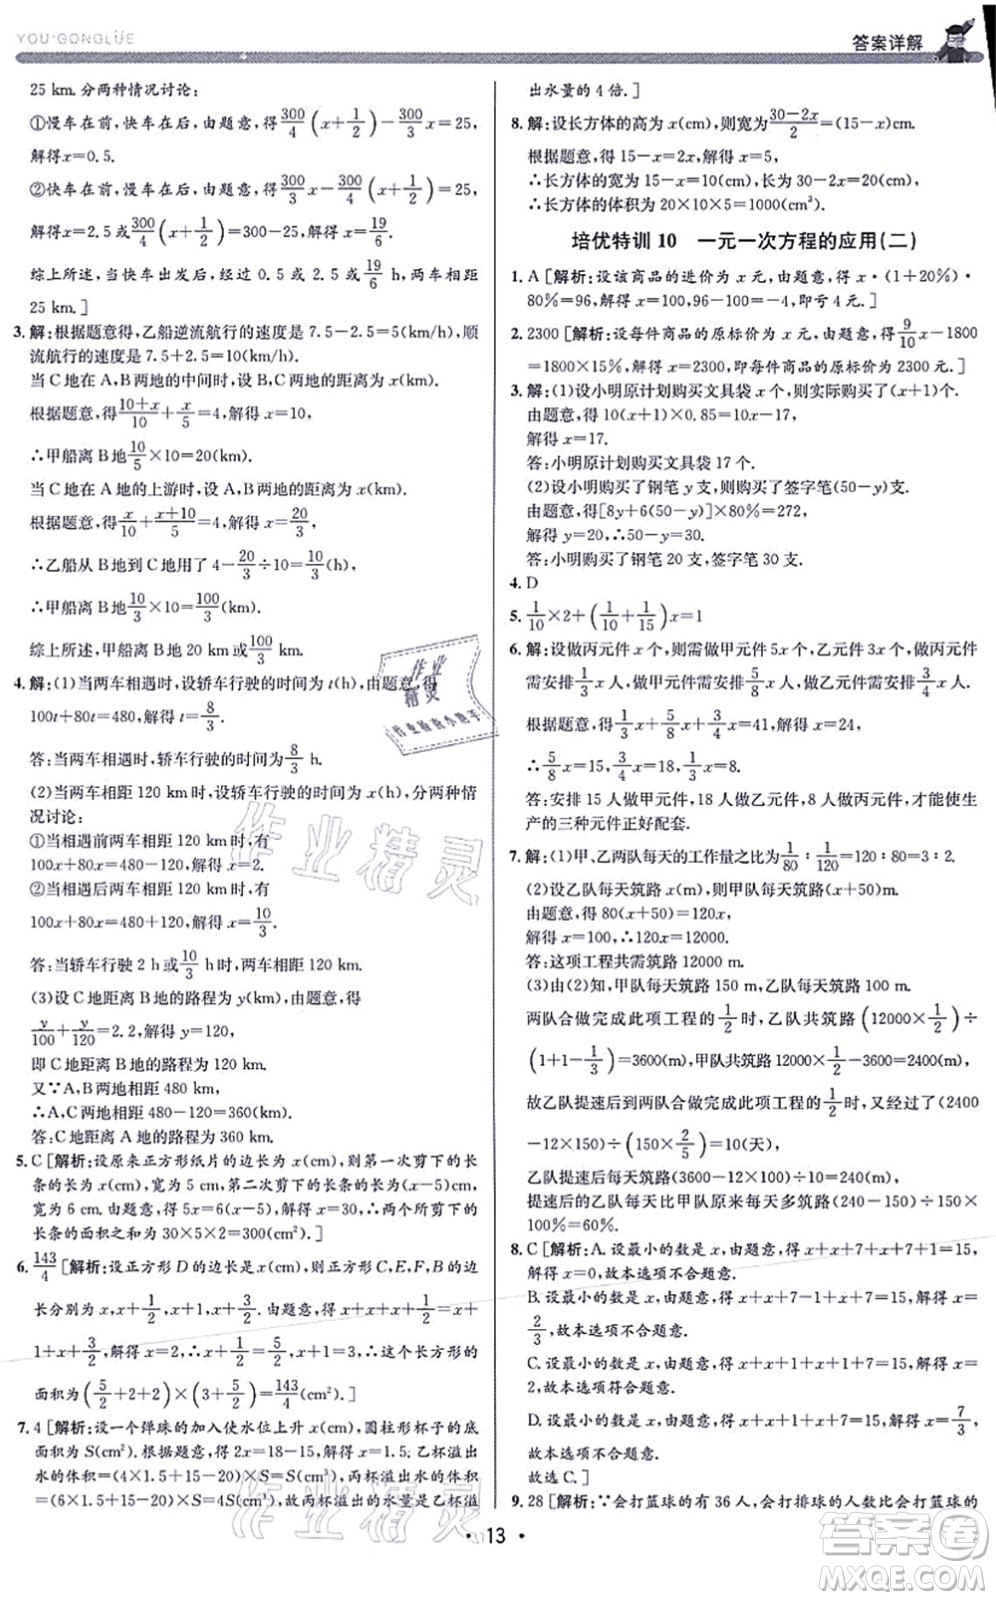 YOU·GONGLÜE
答案详解
25 km. 分两种情况讨论:
①慢车在前,快车在后,由题意,得300/4(x+1/2)-300/3x=25,
解得x=0.5.
②快车在前,慢车在后,由题意,得300/3x-300/4(x+1/2)=25,
解得x=2.5或300/4(x+1/2)=300-25,解得x=19/6.
综上所述,当快车出发后,行驶0.5或2.5或19/6小时两车相距
25 km.]
3.解:根据题意得,乙船逆流航行的速度是7.5-2.5=5(km/h),顺
流航行的速度是7.5+2.5=10(km/h).
当C地在A,B两地的中间时,设B,C两地的距离为x(km).
根据题意,得10+x/10+x/5=4,解得x=10,
∴甲船离B地10/5×10=20(km).
当C地在A地的上游时,设A,C两地的距离为x(km).
根据题意,得x/10+x+10/5=4,解得x=20/3,
∴乙船从B地到C地用了4-20/3÷10=10/3(h),
∴甲船离B地10/3×10=100/3(km).
综上所述,甲船离B地20 km或100/3 km.
4.解:(1)当两车相遇时,设轿车行驶的时间为t(h),由题意,得
100t+80t=480,解得t=8/3.
答:当两车相遇时,轿车行驶的时间为8/3 h.
(2)当两车相距120 km时,设轿车行驶的时间为x(h),分两种情
况讨论:
①当相遇前两车相距120 km时,有
100x+80x=480-120,解得x=2.
②当相遇后两车相距120 km时,有
100x+80x=480+120,解得x=10/3.
答:当轿车行驶2 h或10/3 h时,两车相距120 km.
(3)设C地距离B地的路程为y(km),由题意,得
y/100+y/120=2.2,解得y=120,
即C地距离B地的路程为120 km.
又∵A,B两地相距480 km,
∴A,C两地相距480-120=360(km).
答:C地距离A地的路程为360 km.
5.C [解析:设原来正方形纸片的边长为x(cm),则第一次剪下的长
条的长为x(cm),宽为5 cm,第二次剪下的长条的长为(x-5)cm,
宽为6 cm.由题意,得5x=6(x-5),解得x=30,∴两个所剪下的
长条的面积之和为30×5×2=300(cm²).]
6.143/4 [解析:设正方形D的边长是x(cm),正方形C,E,F,B的边
长分别为x,x+1/2,x+1/2,x+3/2 cm.由题意,得x+x+1/2=x+
1+x+3/2,解得x=2,∴x+1/2=5/2,∴这个长方形的
面积为(5/2+2+2)×(3+5/2)=143/4(cm²).]
7.4 [解析:设一个弹球的加入使水位上升x(cm),圆柱形杯子的底
面积为S(cm²).根据题意,得2x=18-15,解得x=1.5;乙杯溢出
水的体积=(4×1.5+15-20)×S=S(cm³),丙杯溢出的水的体积
=(6×1.5+15-20)×S=4S(cm³),故丙杯溢出的水量是乙杯溢
出水量的4倍.]
8.解:设长方体的高为x(cm),则宽为30-2x/2=(15-x)cm.
根据题意,得15-x=2x,解得x=5,
∴长方体的宽为15-x=10(cm),长为30-2x=20(cm),
∴长方体的体积为20×10×5=1000(cm³).
培优特训10 一元一次方程的应用(二)
1.A [解析:设该商品的进价为x元,由题意,得x·(1+20%)·
80%=96,解得x=100,96-100=-4(元),即亏4元.]
2.2300 [解析:设每件商品的原标价为x元,由题意,得9/10x-1800
=1800×15%,解得x=2300,即每件商品的原标价为2300元.]
3.解:(1)设小明原计划购买文具袋x个,则实际购买了(x+1)个.
由题意,得10(x+1)×0.85=10x-17,
解得x=17.
答:小明原计划购买文具袋17个.
(2)设小明购买了钢笔y支,则购买了签字笔(50-y)支.
由题意,得[8y+6(50-y)]×80%=272,
解得y=20,∴50-y=30.
答:小明购买了钢笔20支,签字笔30支.
4.D
5.1/10×2+(1/10+1/15)x=1
6.解:设做丙元件x个,则需做甲元件5x个,乙元件6x个,做丙元件
需安排1/3x人,做甲元件需安排5/8x人,做乙元件需安排3/4x人.
根据题意,得1/3x+5/8x+3/4x=41,解得x=24,
∴5/8x=15,3/4x=18,1/3x=8.
答:安排15人做甲元件,18人做乙元件,8人做丙元件,才能使生
产的三种元件正好配套.
7.解:(1)甲、乙两队每天的工作量之比为1/80:1/120=120:80=3:2.
(2)设乙队每天筑路x(m),则甲队每天筑路(x+50)m.
由题意,得80(x+50)=120x,
解得x=100,∴120x=12000.
答:这项工程共需筑路12000 m.
(3)由(2)知,甲队每天筑路150 m,乙队每天筑路100 m.
两队合做完成此项工程的1/2时,乙队共筑路(12000×1/2)÷
(1+1-1/3)=3600(m),甲队共筑路12000×1/2-3600=2400(m),
故乙队提速后到两队合做完成此项工程的1/2时,又用了(2400
-12×150)÷(150×2/5)=10(天),
乙队提速后每天筑路(3600-12×100)÷10=240(m),
提速后的乙队每天比甲队原来每天多筑路(240-150)÷150×
100%=60%.
8.C [解析:A.设最小的数是x,由题意,得x+x+7+x+7+1=15,
解得x=0,故本选项不合题意.
B.设最小的数是x,由题意,得x+x+7-1+x+7=15,解得x=
2/3,故本选项不合题意.
C.设最小的数是x,由题意,得x+x+1+x+1+7=15,解得x=2,
故本选项符合题意.
D.设最小的数是x,由题意,得x+x+1+x+7=15,解得x=7/3,
故本选项不合题意.
故选C.]
9.28 [解析:∵会打篮球的有36人,会打排球的人数比会打篮球的
·13·
作业精灵
作业检查小助手
作业精灵
作业精灵
答案圈
MXQE.COM